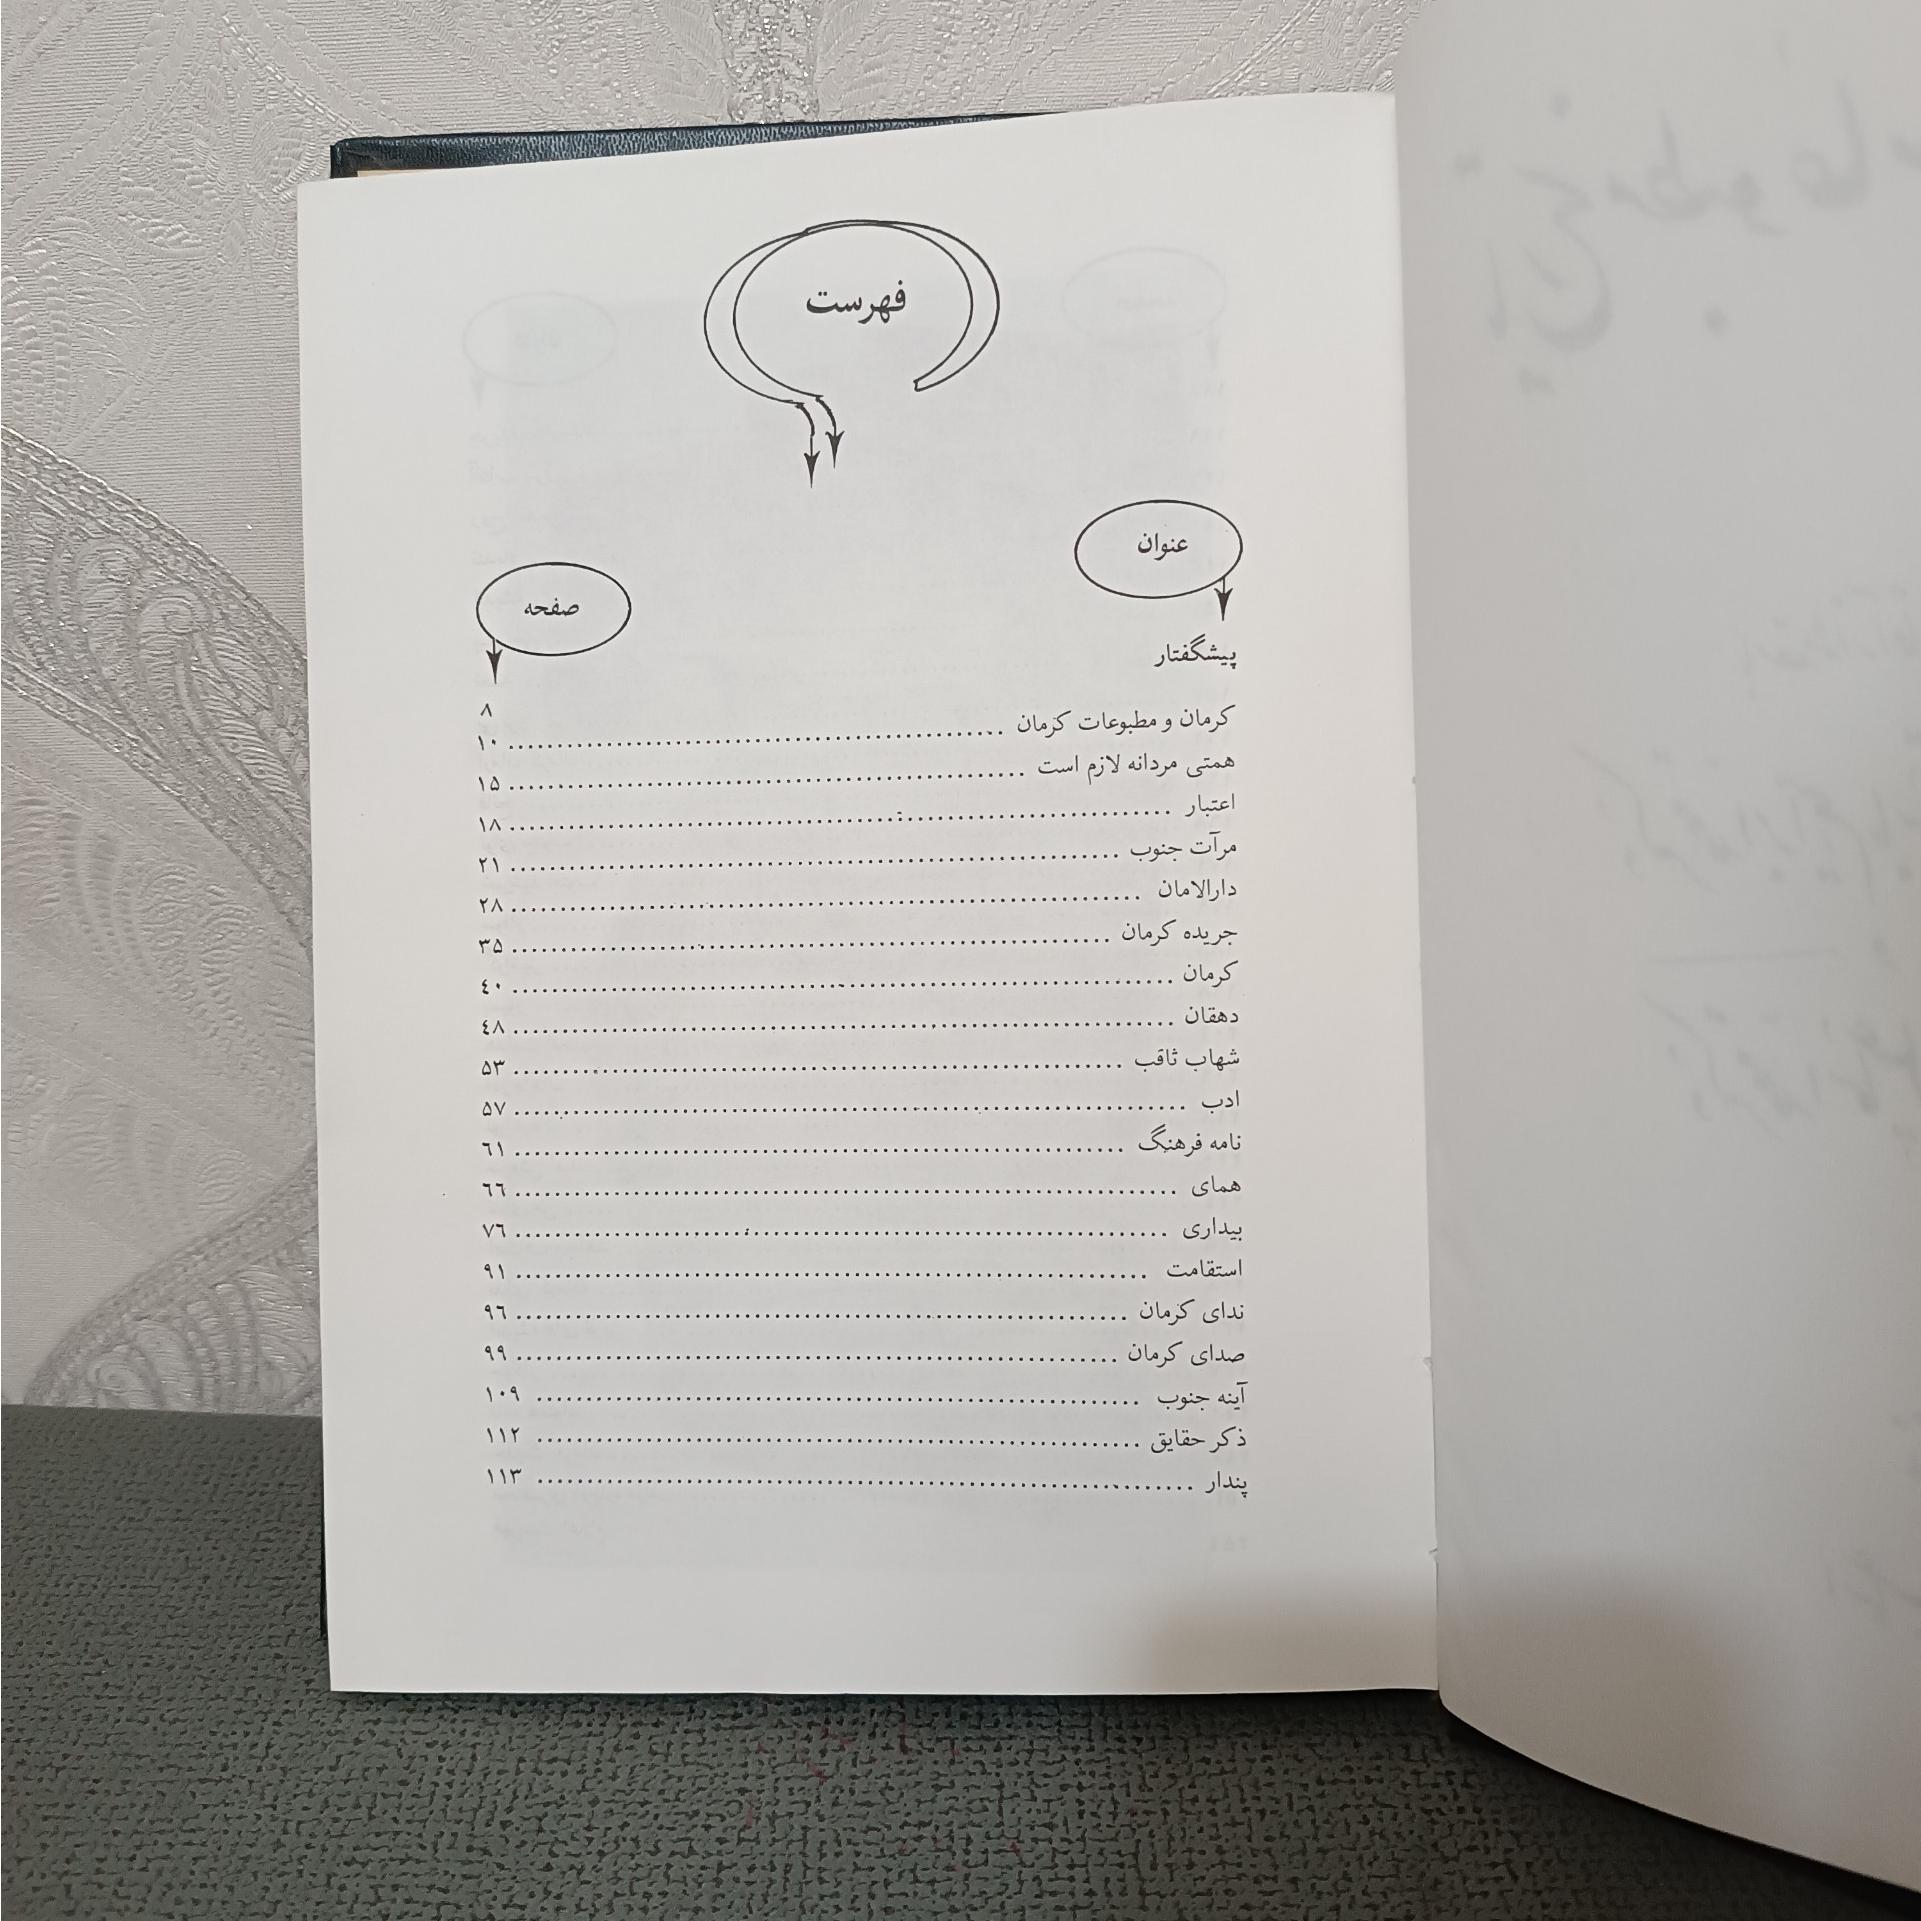 فهرست
عنوان
صفحه
پیشگفتار ۸
کرمان و مطبوعات کرمان ........ ۱۰
همتی مردانه لازم است ........ ۱۵
اعتبار ........ ۱۸
مرآت جنوب ........ ۲۱
دارالامان ........ ۲۸
جریده کرمان ........ ۳۵
کرمان ........ ٤۰
دهقان ........ ٤۸
شهاب ثاقب ........ ۵۳
ادب ........ ۵۷
نامه فرهنگ ........ ٦۱
همای ........ ٦٦
بیداری ........ ۷٦
استقامت ........ ۹۱
ندای کرمان ........ ۹٦
صدای کرمان ........ ۹۹
آینه جنوب ........ ۱۰۹
ذکر حقایق ........ ۱۱۲
پندار ........ ۱۱۳